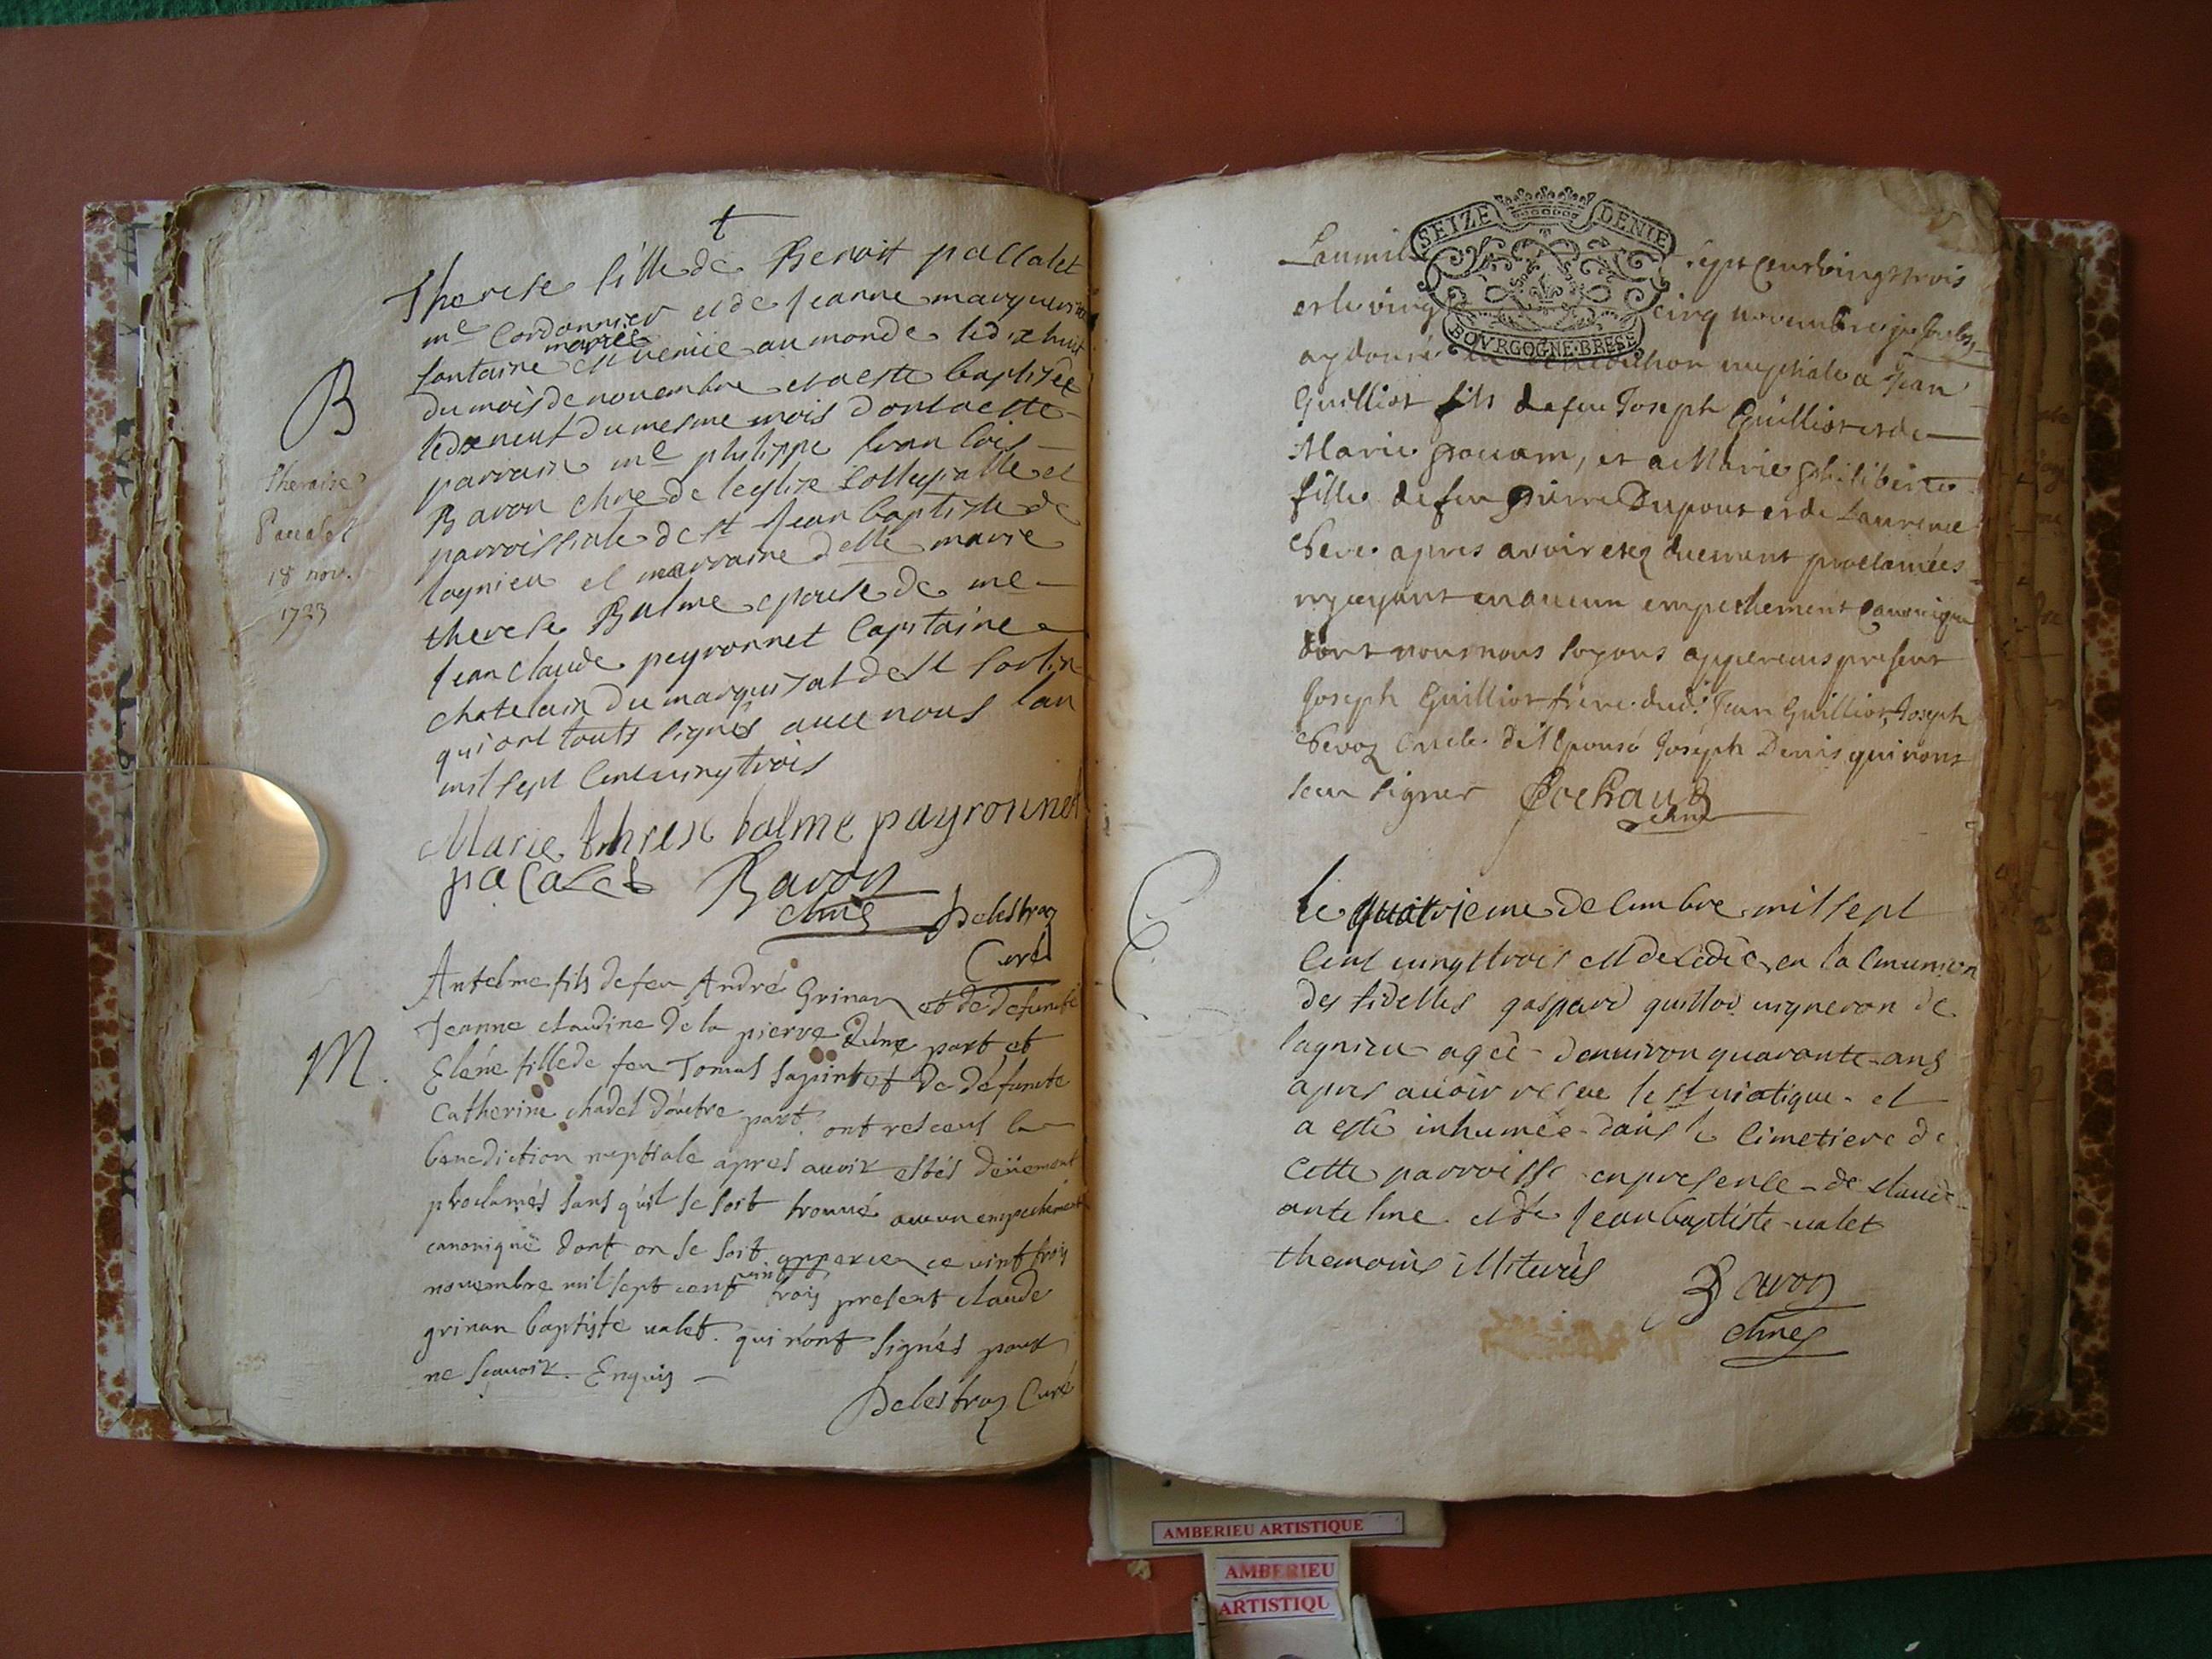 t
Therese fille de Benoit pallalet
me Cordonnier et de Jeanne marguerite
fontaine mariés est venüe au monde le dix huit
du mois de novembre et a esté baptisée
le dix neuf du mesme mois dont a esté
parrain me philippe francois
Bavoz chne de leglise Collegialle et
parroissiale de st Jean baptiste de
lagnieu et marraine delle marie
therese Balme epouse de me
Jean claude peyronnet Capitaine
chatelain du marquisat de st sorlin
qui ont touts signés avec nous lan
mil sept cent vingt trois
B
18 nov.
1723
Marie threse balme payronnet
pacalet Bavoz
chne Delestraz
Curé
Antelme fils de feu André Grinan et de defunte
Jeanne claudine de la pierre d'une part et
M.
Elene fille de feu Tomas sapint et de défunte
Catherine chadel d'autre part ont resceus la
benediction nuptiale apres avoir estés deüement
proclamés sans qu'il se soit trouué aucun empechement
canonique dont on se soit apperceu ce vint trois
novembre mil sept cent vint trois present claude
grinan baptiste valet qui n'ont signés pour
ne scavoir. Enquis
Delestraz Curé
SEIZE DENIE
BOURGOGNE BRESE
Lan mil sept cent vingt trois
et le vingt cinq novembre je soubs
ay donné la benediction nuptiale a Jean
Guilliot fils de feu Joseph Guilliot et de
Marie, et a Marie philiberte
fille de feu pierre Dupont et de Laurence
Chevoz apres avoir estez duement proclamées
n'y ayant eu aucun empechement canonique
dont nous nous soyons apperceus present
Joseph Guilliot frere dud. Jean Guilliot, Joseph
Chevoz oncle de l'epousé Joseph Denis qui n'ont
sceu signer Cochaud
chne
le quatrieme decembre mil sept
cent vingt trois est decedé en la Cmunion
des fidelles gaspard guillod vigneron de
lagnieu agée d'environ quarante ans
apres avoir receu le st viatique et
a esté inhumée dans le cimetiere de
cette parroisse en presence de claude
antelme et de Jean baptiste valet
themoins illiterés
Bavoz
chne
AMBERIEU ARTISTIQUE
AMBERIEU
ARTISTIQU